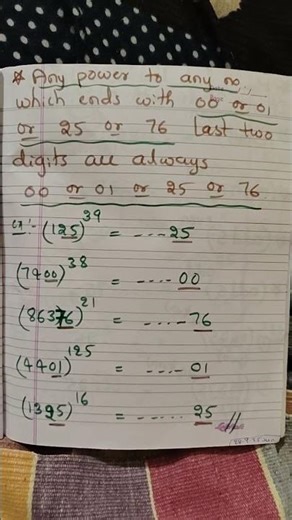 * Any power to any no
which ends with 00 or 01
or 25 or 76 Last two
digits are always
00 or 01 or 25 or 76
eg:- (125)³⁹ = ----25
(7400)³⁸ = ----00
(86376)²¹ = ----76
(4401)¹²⁵ = ----01
(1325)¹⁶ = ..... 25